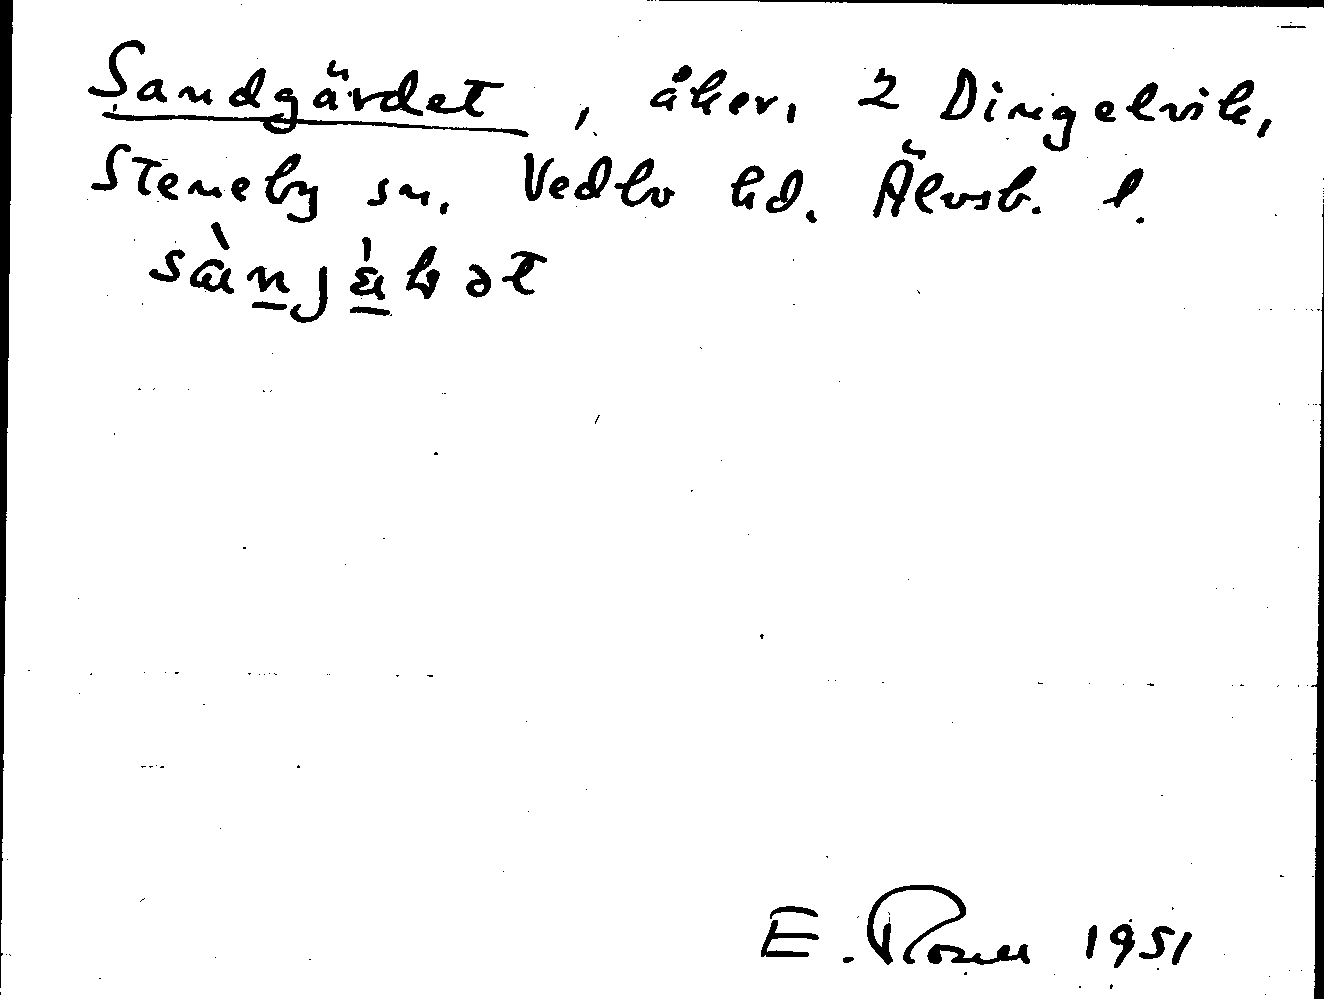 Sandgärdet, åker, 2 Dingelvik,
Steneby sn. Vedbo hd. Älvsb. l.
E. Rosell 1951